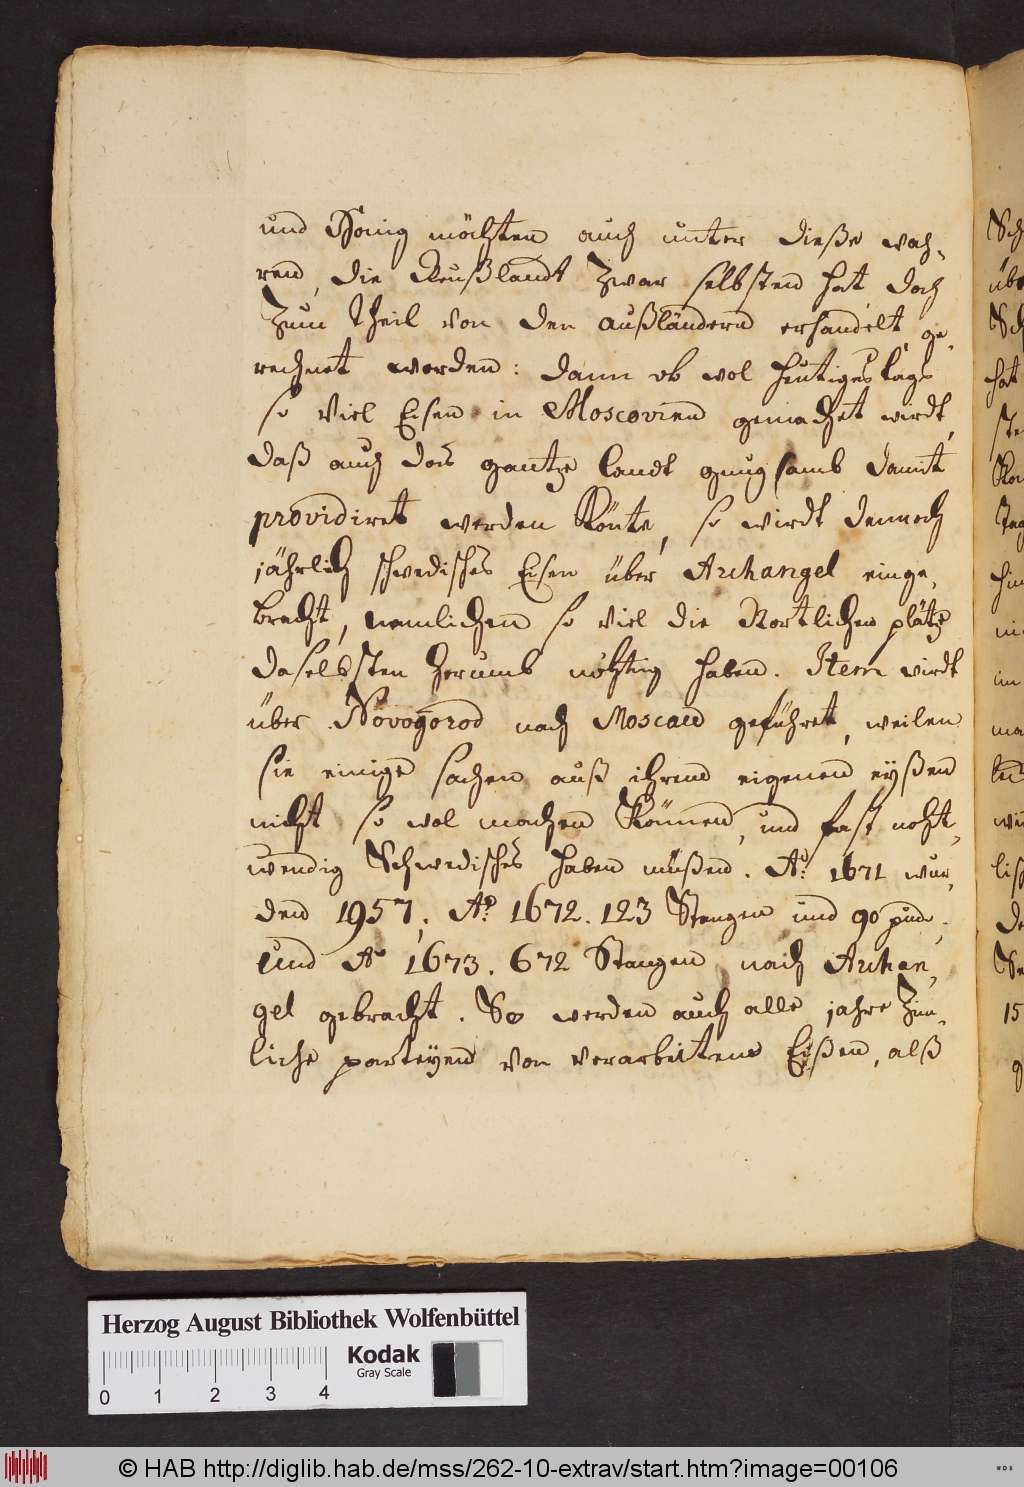 und Honig möchten auch unter dieße wah,
ren, die Reußlandt zwar selbsten hat, doch
zum theil von den außländern erhandelt, ge,
rechnet werden: dann ob wol heutiges tags
so viel Eisen in Moscovien gemachet wirdt,
daß auch das gantze landt gnugsamb damit
providiret werden könte, so wirdt dennoch
jährlich schwedisches Eisen über Archangel einge,
bracht, nemlichen so viel die Nortlichen plätze
daselbsten herumb nöhtig haben. Item wirdt
über Novogorod nach Moscau geführet, weilen
sie einige sachen auß ihrem eigenen eyßen
nicht so wol machen können, und fast noht,
wendig Schwedisches haben müßen. Aō: 1671 wur,
den 1957, Aō: 1672. 123 Stangen und 90 pude,
und Aō 1673. 672 Stangen nach Archan,
gel gebracht. So werden auch alle jahre zim,
liche parteyen von verarbeiteten Eißen, alß
Herzog August Bibliothek Wolfenbüttel
Kodak
Gray Scale
0 1 2 3 4
© HAB http://diglib.hab.de/mss/262-10-extrav/start.htm?image=00106